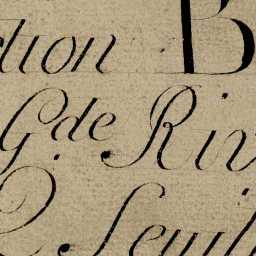 ction B
G.de Riv
Seuil